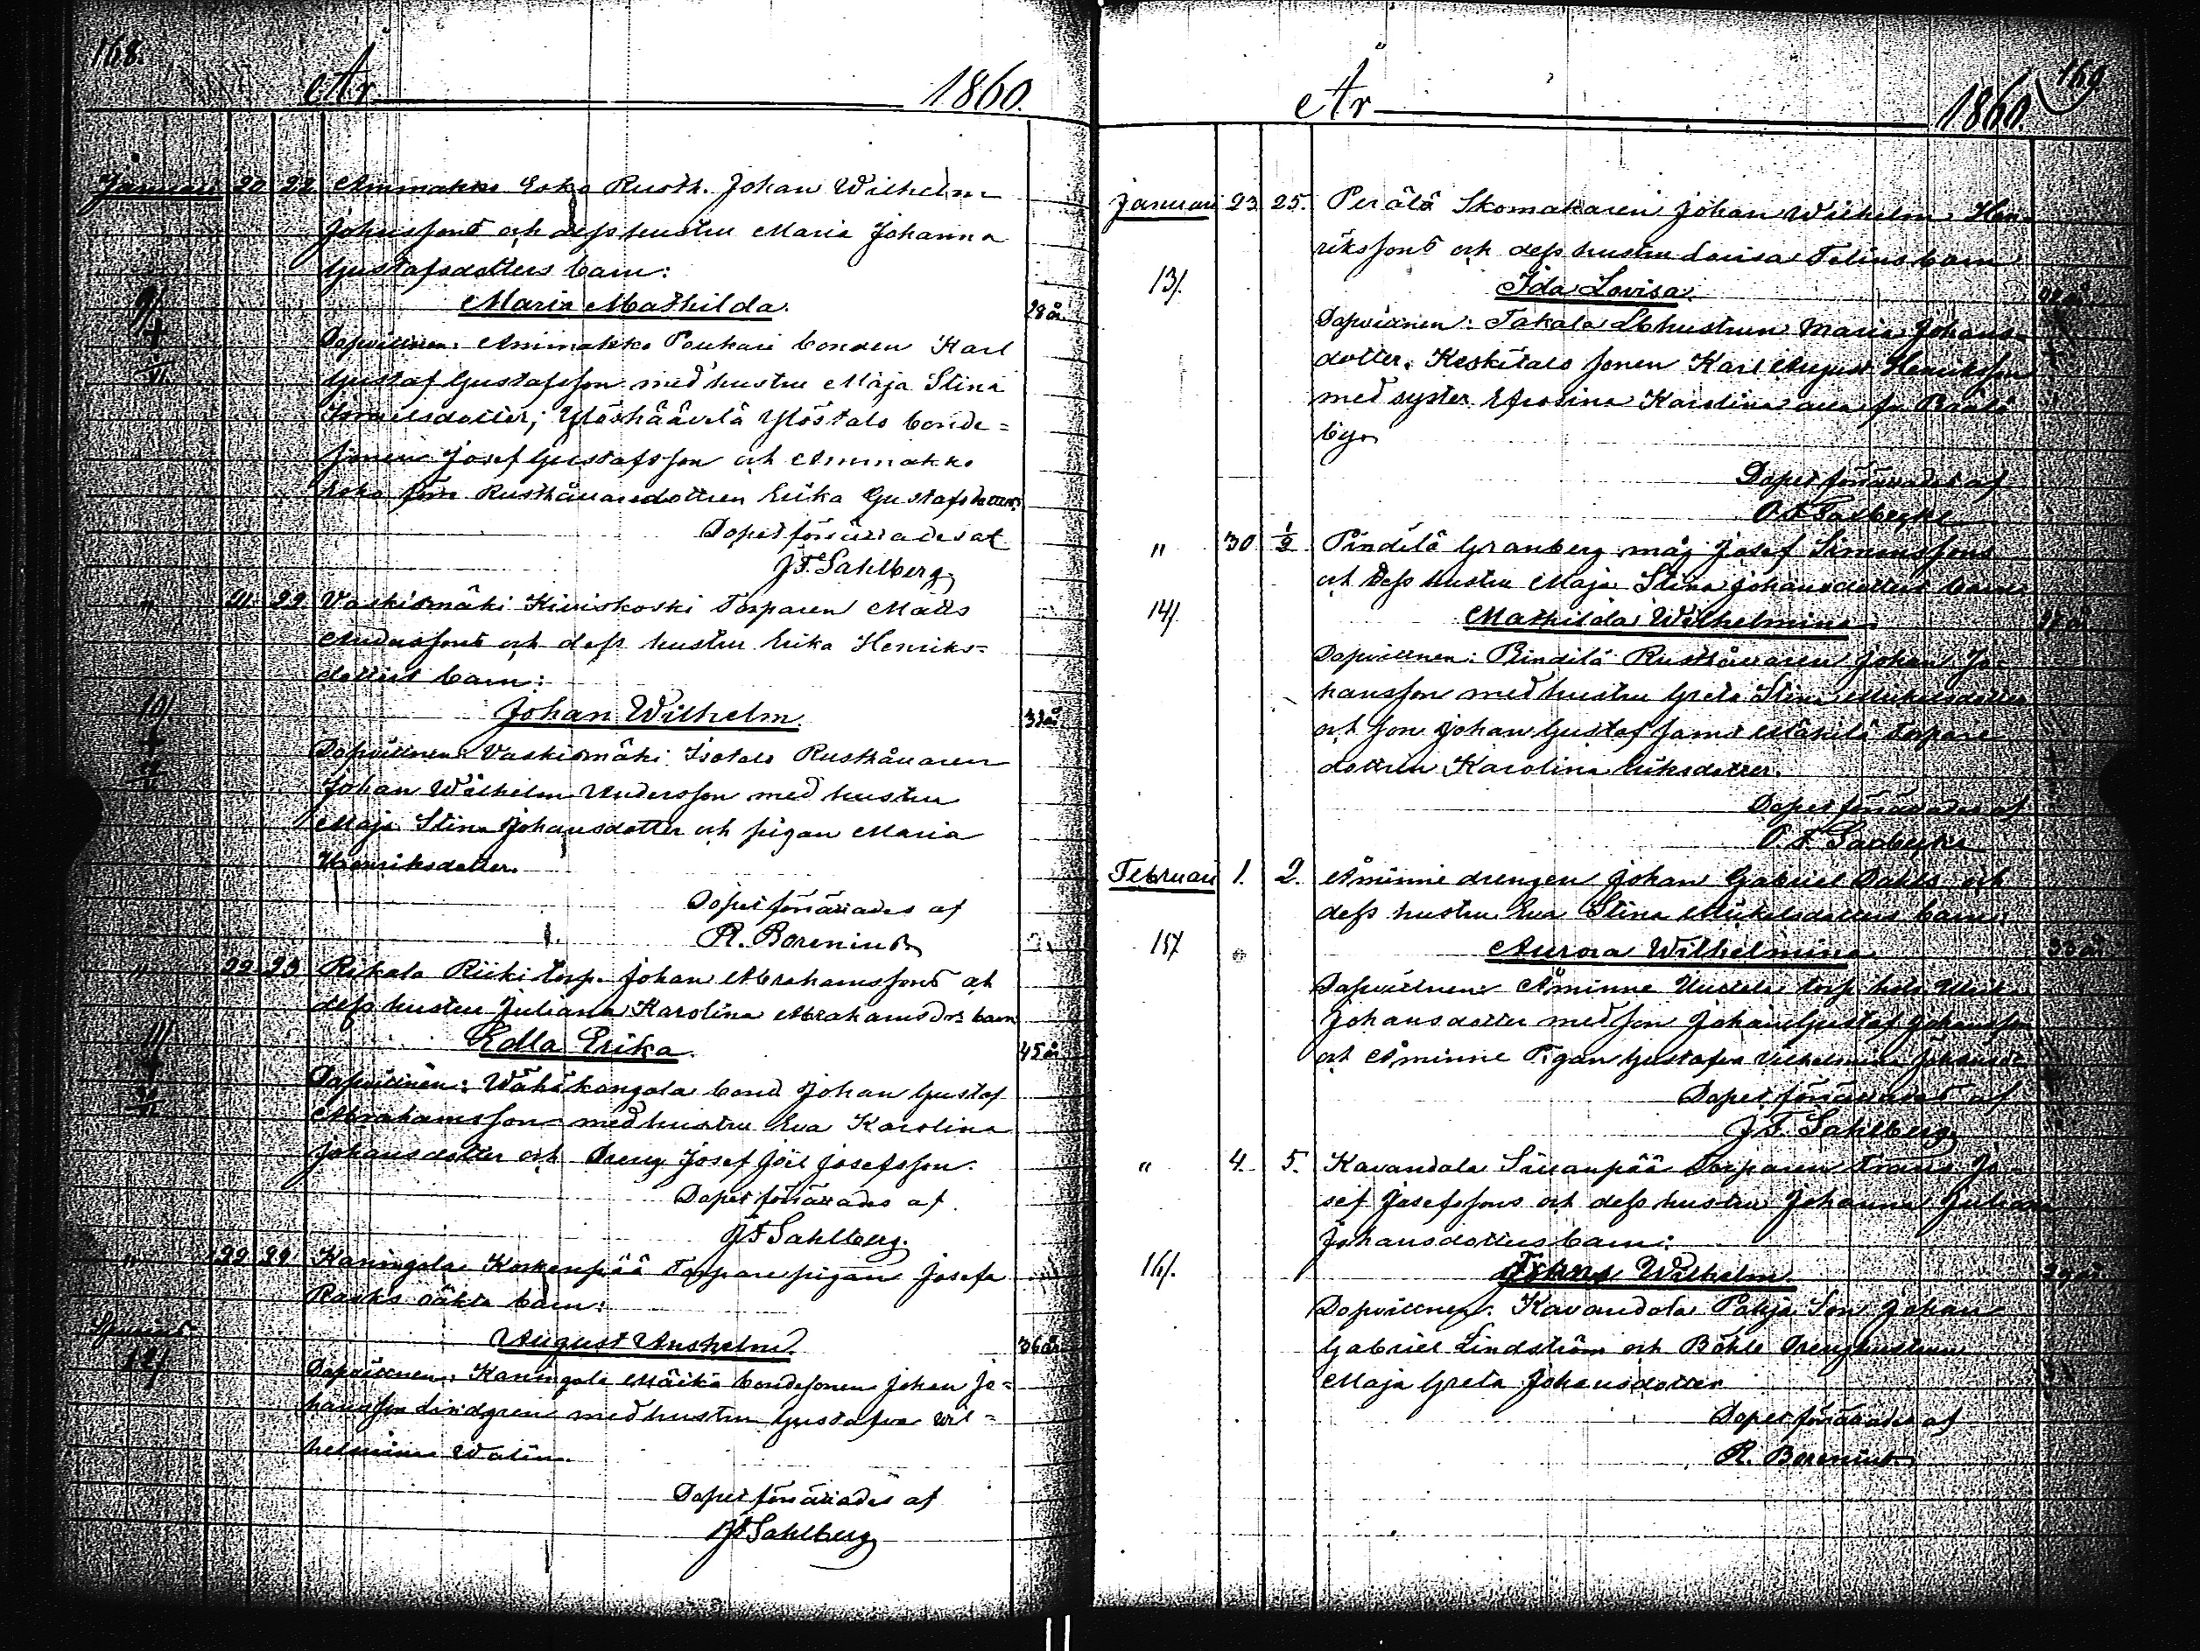 168.
År 1860.
Januari 20 22 Ammakko Esko Rusth. Johan Wilhelm
Johanssons och dess hustru Maria Johanna
Gustafsdotters barn:
9/. Maria Mathilda. 28 år
Dopvittnen: Ammakko Poukari bonden Karl
Gustaf Gustafsson med hustru Maja Stina
Israelsdotter; Ylöshäävelä Ylöstalo bonde=
sonen Josef Gustafsson och Ammakko
Esko Rusthållaredottren Erika Gustafsdotter.
Dopet förrättades af
J F. Sahlberg.
" 21 22 Vaskismäki Kiviskoski Torparen Matts
Anderssons och dess hustru Erika Henriks=
dotters barn:
10/. Johan Wilhelm. 32 år
Dopvittnen: Vaskismäki Isotalo Rusthållaren
Johan Wilhelm Andersson med hustru
Maja Stina Johansdotter och pigan Maria
Henriksdotter.
Dopet förrättades af
R. Borenius
" 22 23 Rekala Riiki torp. Johan Abrahamssons och
dess hustru Juliana Karolina Abrahamsdrs barn
11/. Edla Erika. 45 år
Dopvittnen: Wähäkangola bond Johan Gustaf
Abrahamsson med hustru Eva Karolina
Johansdotter och Dreng Josef Joel Josefsson.
Dopet förrättades af
J F Sahlberg.
" 22 24 Kaningola Koskenpää Torpare pigan Josefa
oäkta barn:
Spurius
12/. August Anshelm. 36 år
Dopvittnen: Kaningola bondesonen Johan Jo=
hansson Lindgren med hustru Gustafva Wil=
helmina Walin.
Dopet förrättades af
J F Sahlberg
169
År 1860.
Januari 23 25. Perälä Skomakaren Johan Wilhelm Hen=
rikssons och dess hustru Lovisa Felins barn
13/. Ida Lovisa.
Dopvittnen: Takala hustrun Maria Johans=
dotter. Keskitalo sonen Karl August Henriksson
med syster Efrosina Karolina alla fr Perälä
by.
Dopet förrättades af
" 30 1/2 Pindilä Granberg måg Josef Simonssons
och dess hustru Maja Stina Johansdotters barn
14/. Mathilda Wilhelmina.
Dopvittnen: Pindilä Rusthållaren Johan Jo=
hansson med hustru Greta Stina Mikelsdotter
och son Johan Gustaf samt Mäkilä torpare
dottren Karolina Eriksdotter.
Dopet förrättades af
Februari 1. 2. Åminne drengen Johan Gabriel Dahls och
dess hustru Eva Stina Mikelsdotters barn:
15/. Aurora Wilhelmina
Dopvittnen: Åminne torp
Johansdotter med son Johan Gustaf Johansson
och Åminne Pigan Gustafva Wilhelmina Johansdr
Dopet förrättades af
J F. Sahlberg
" 4. 5. Kavandola Torparen Frans Jo=
sef Josefssons och dess hustru Johanna Juliana
Johansdotters barn:
16/. Frans Wilhelm
Dopvittnen: Kavandola Son Johan
Gabriel Lindström och Böhle Drenghustrun
Maja Greta Johansdotter
Dopet förrättades af
R. Borenius